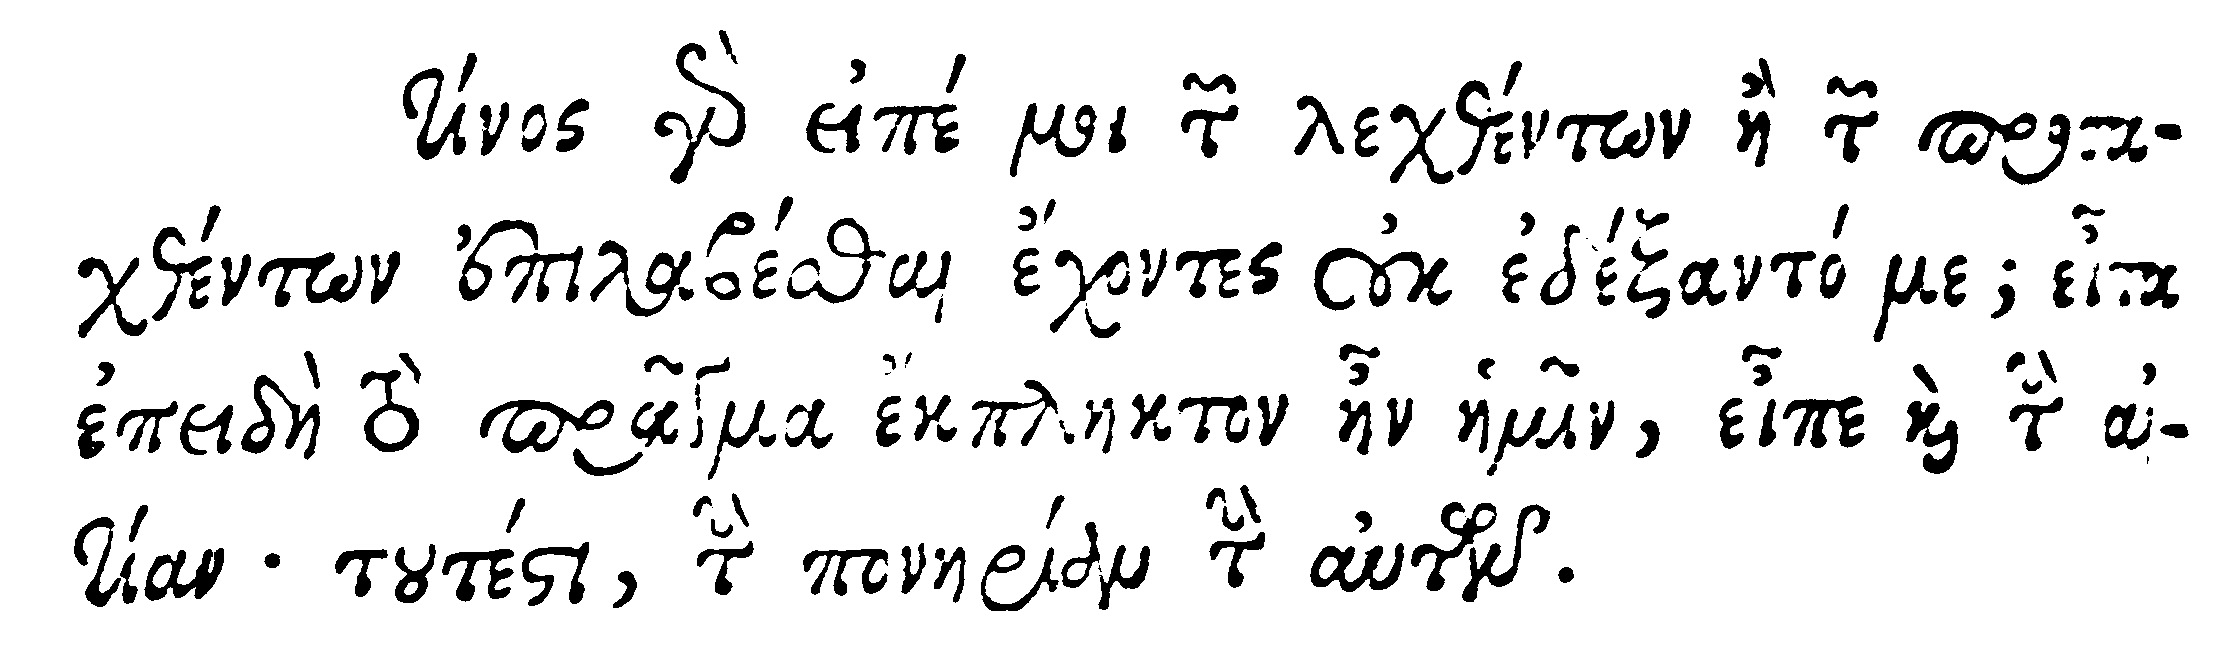 τίνος γὰρ εἰπέ μοι τῶν λεχθέντων ἢ τῶν προτα-
χθέντων ἐπιλαβέσθαι ἔχοντες οὐκ ἐδέξαντό με; εἶτα
ἐπειδὴ τὸ πρᾶγμα ἔκπληκτον ἦν ἡμῖν, εἶπε καὶ τὴν αἰ-
τίαν · τουτέστι, τὴν πονηρίαν τὴν αὐτῶν.